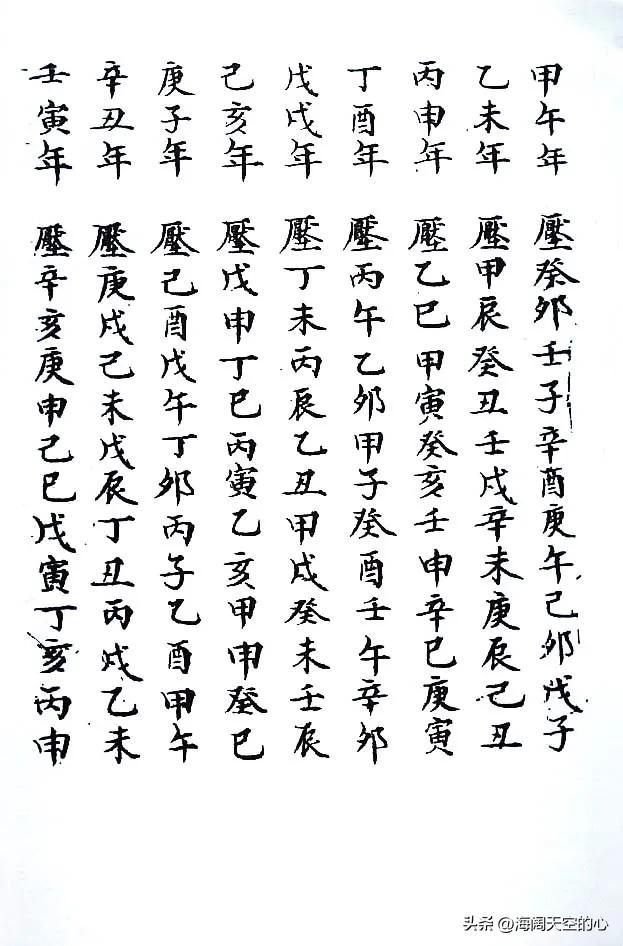 甲午年 壓癸卯壬子辛酉庚午己卯戊子
乙未年 壓甲辰癸丑壬戌辛未庚辰己丑
丙申年 壓乙巳甲寅癸亥壬申辛巳庚寅
丁酉年 壓丙午乙卯甲子癸酉壬午辛卯
戊戌年 壓丁未丙辰乙丑甲戌癸未壬辰
己亥年 壓戊申丁巳丙寅乙亥甲申癸巳
庚子年 壓己酉戊午丁卯丙子乙酉甲午
辛丑年 壓庚戌己未戊辰丁丑丙戌乙未
壬寅年 壓辛亥庚申己巳戊寅丁亥丙申
头条 @海阔天空的心